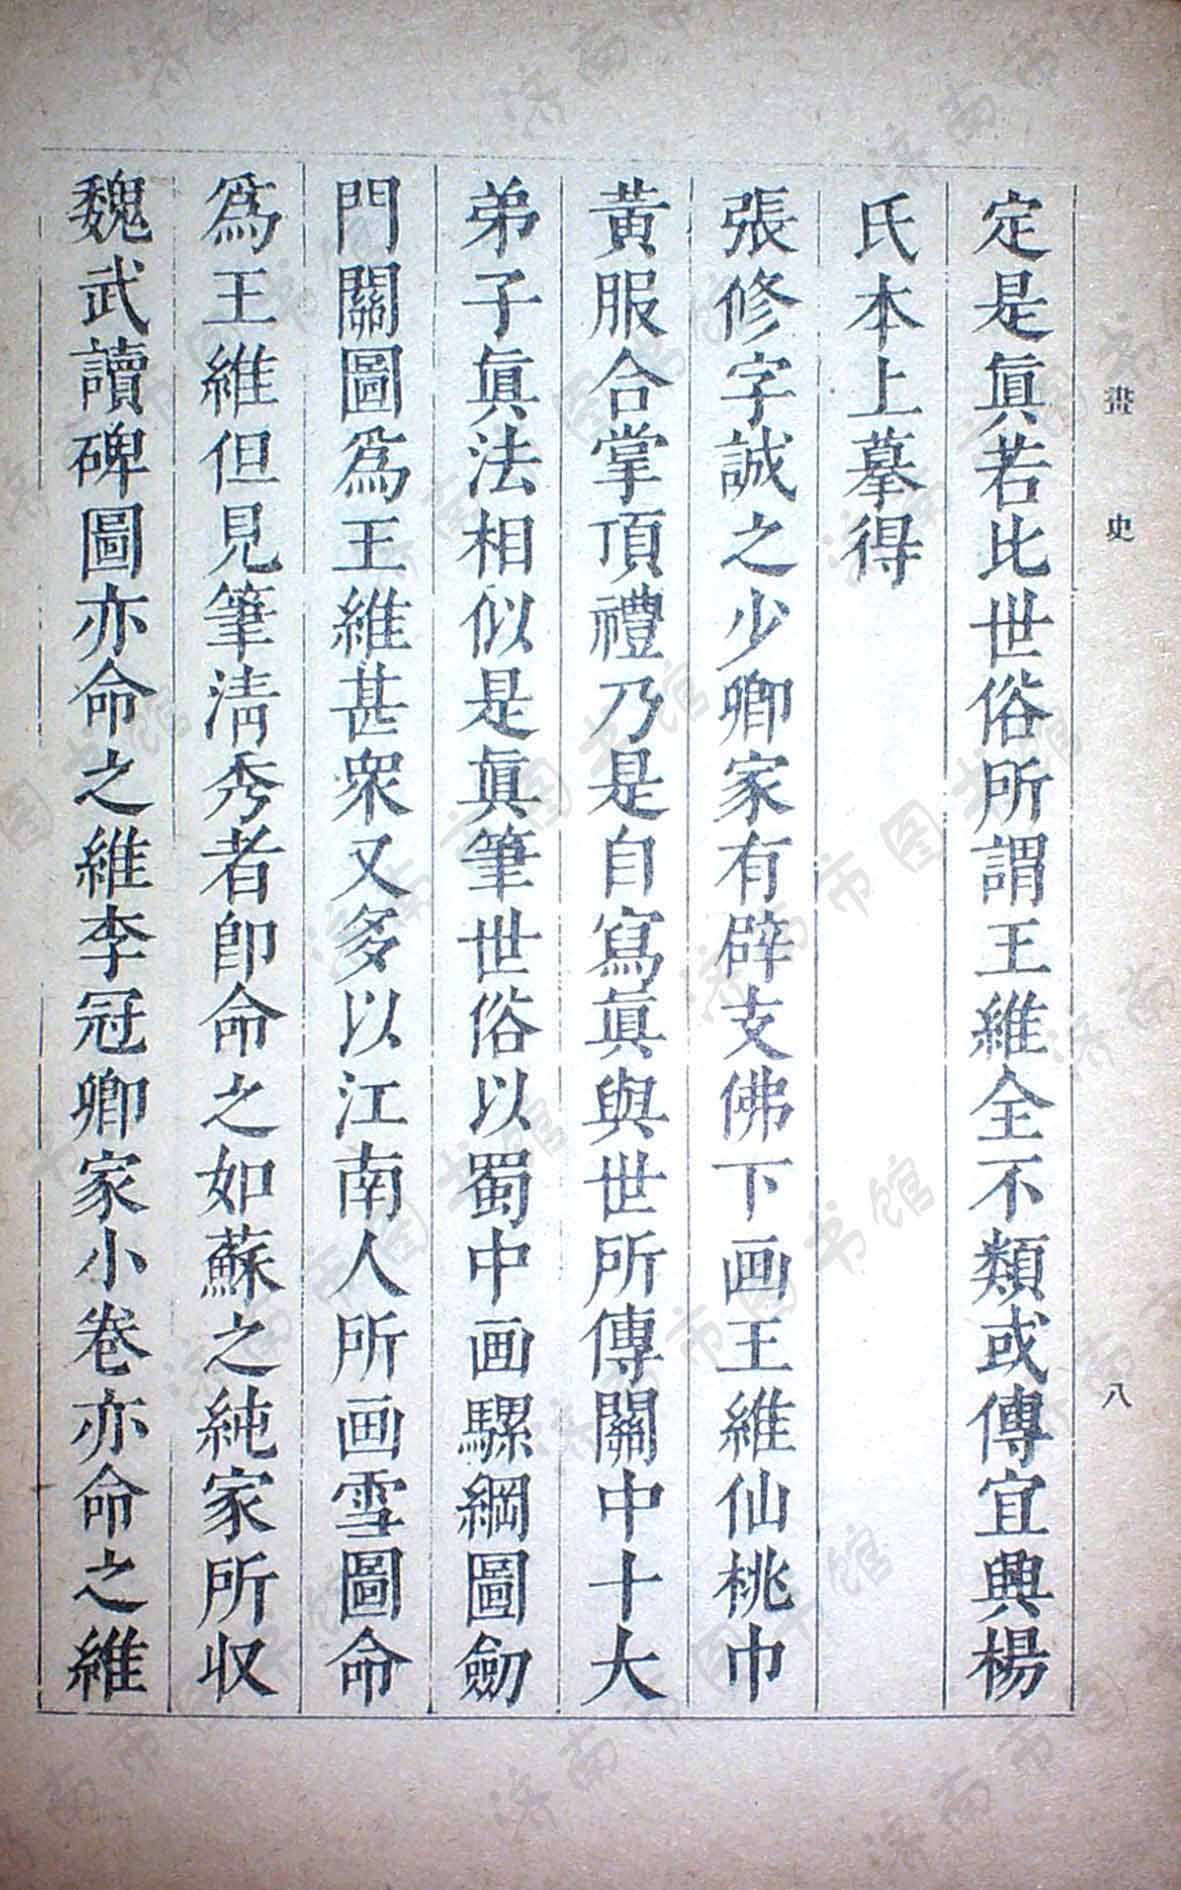 畫史 八
定是眞若比世俗所謂王維全不類或傳宜興楊
氏本上摹得
張修字誠之少卿家有辟支佛下画王維仙桃巾
黃服合掌頂禮乃是自寫眞與世所傳關中十大
弟子眞法相似是眞筆世俗以蜀中画騾綱圖劒
門關圖爲王維甚衆又多以江南人所画雪圖命
爲王維但見筆清秀者即命之如蘇之純家所収
魏武讀碑圖亦命之維李冠卿家小卷亦命之維
济南市图书馆